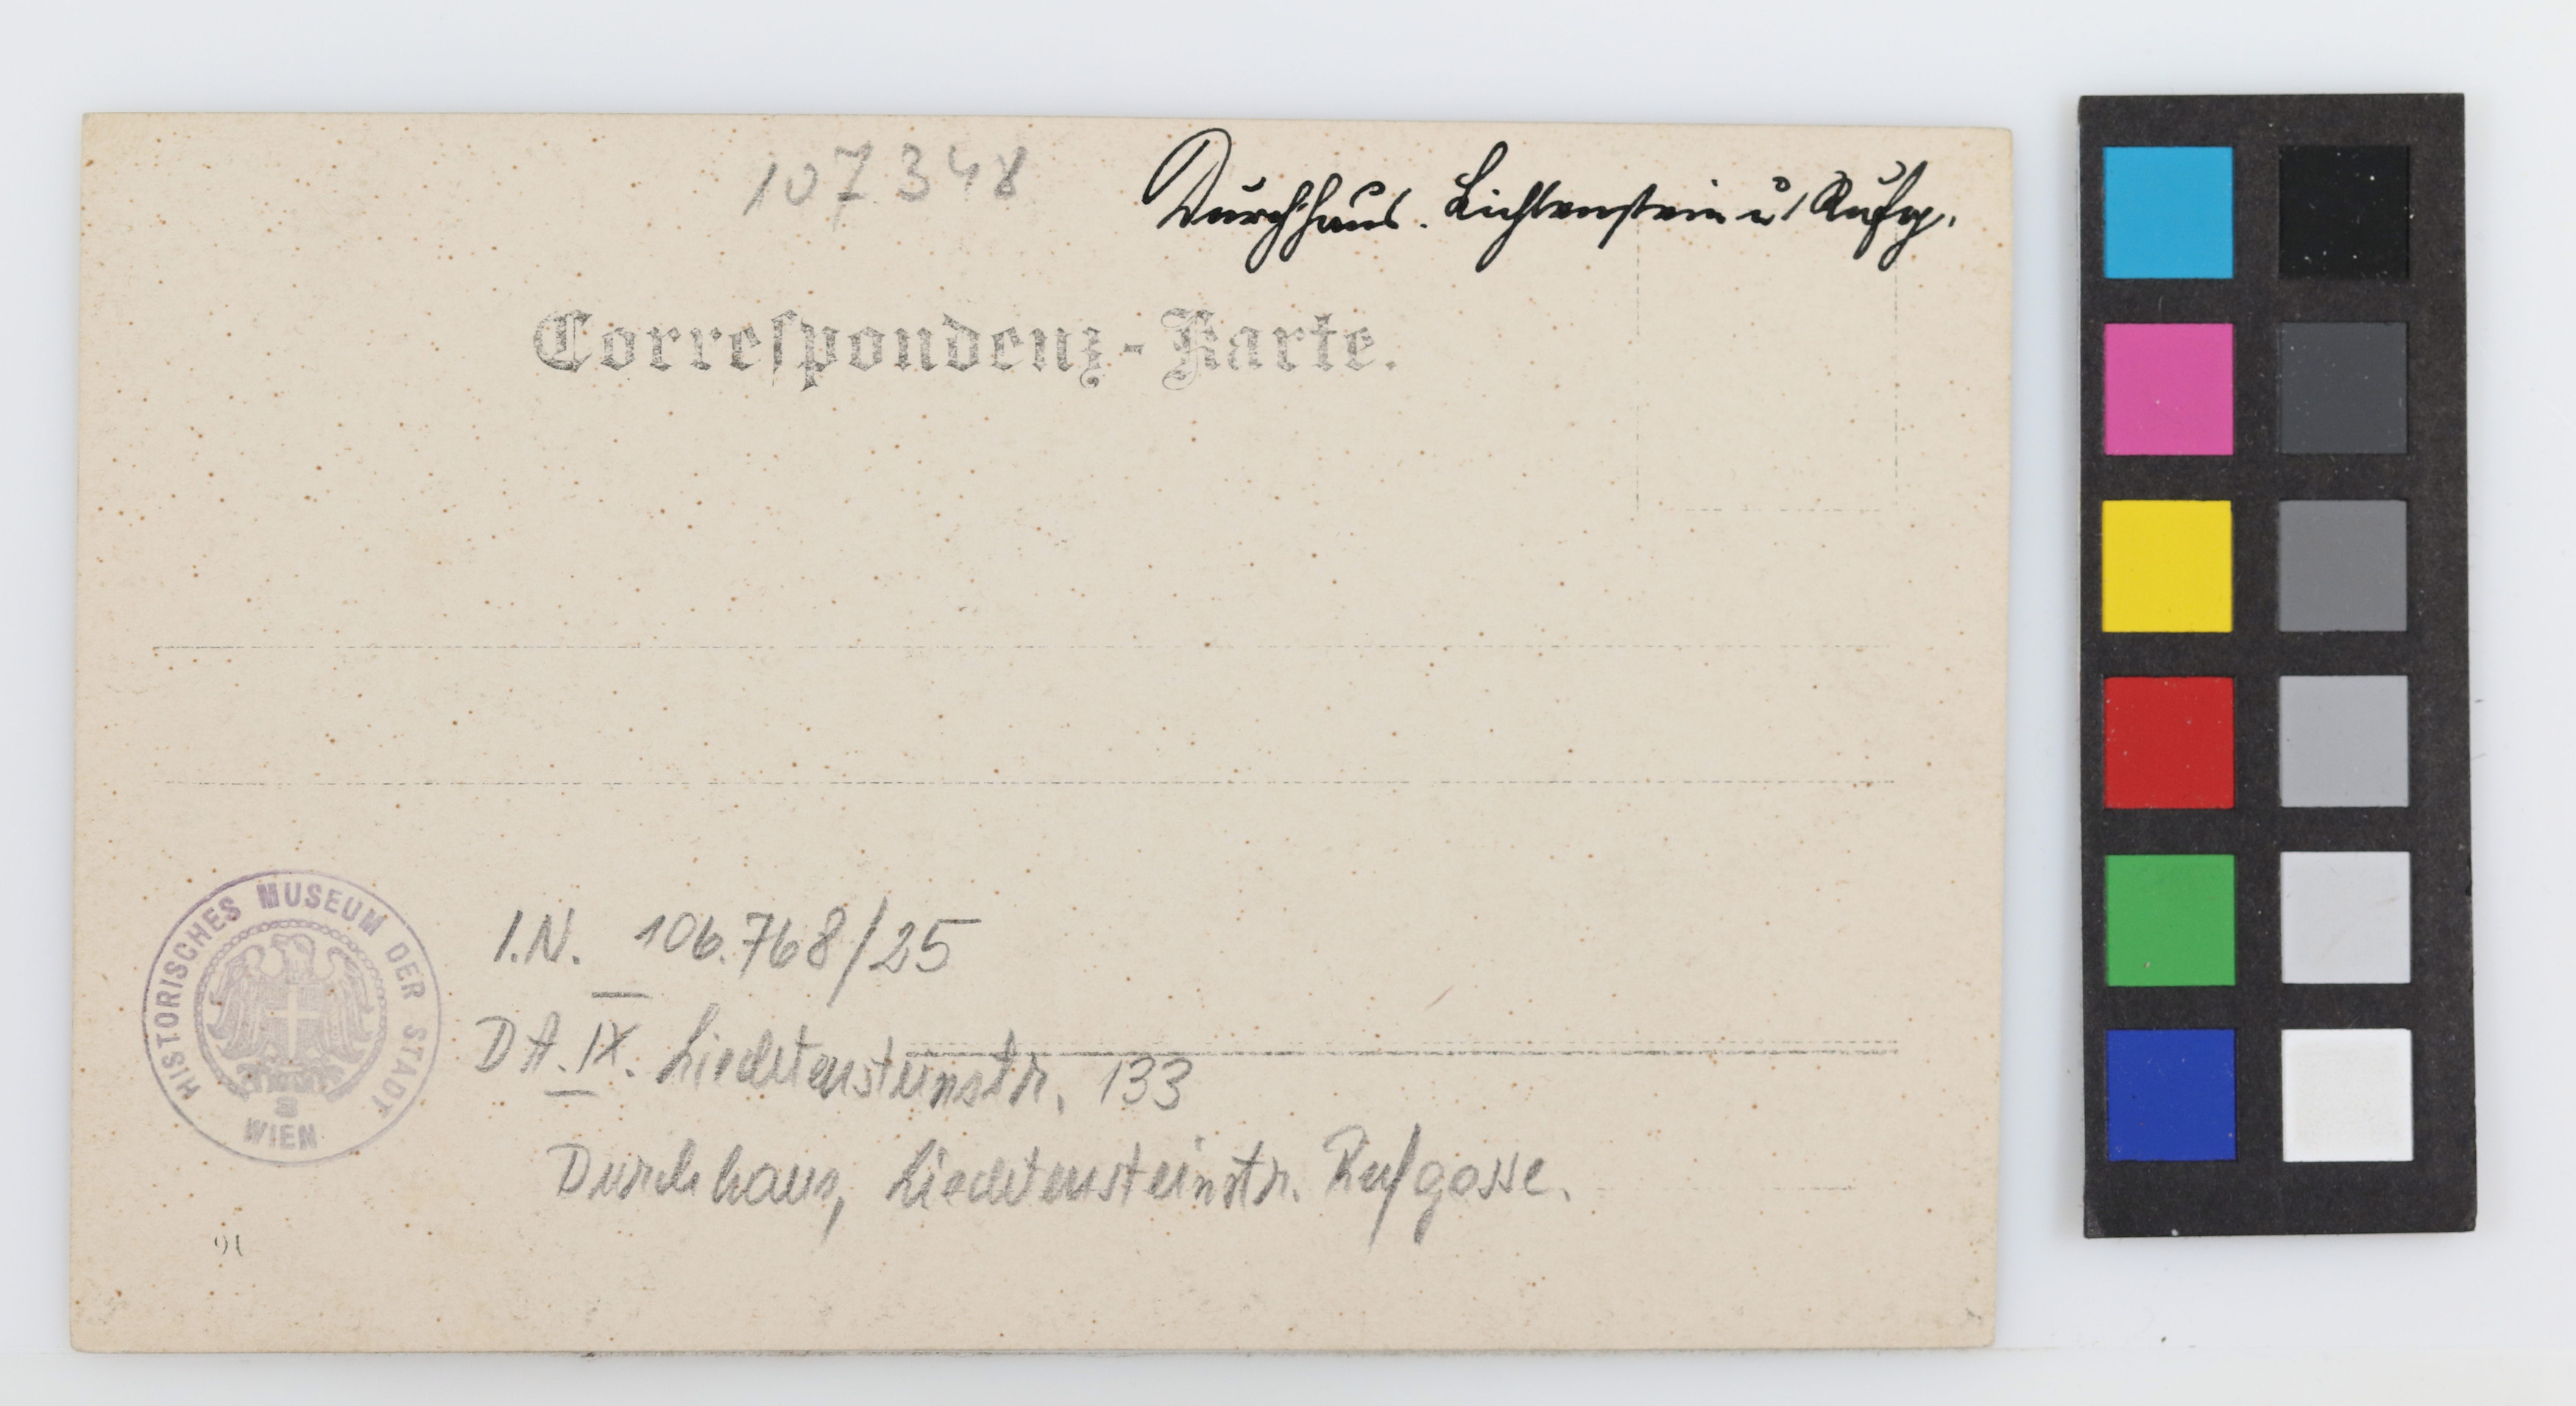 107.348
Durchhaus. Lichtenstein u Rufg.
Correspondenz-Karte.
I.N. 106.768/25
DA. IX. Liechtensteinstr. 133
Durchhaus, Liechtensteinstr. Rufgasse.
HISTORISCHES MUSEUM DER STADT
WIEN
91